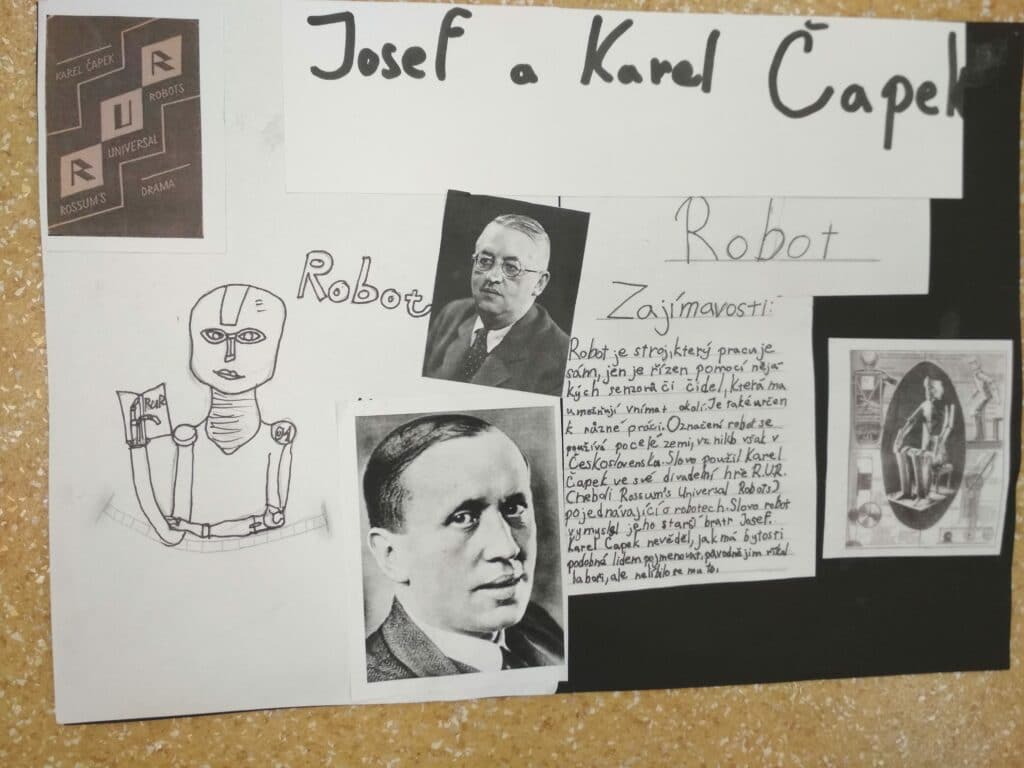 Josef a Karel Čapek
KAREL ČAPEK
R
ROBOTS
U
UNIVERSAL
R
ROSSUM'S
DRAMA
Robot
RUR
Robot
Zajímavosti:
Robot je stroj, který pracuje
sám, jen je řízen pomocí něja-
kých senzorů či čidel, která mu
umožňují vnímat okolí. Je také určen
k různé práci. Označení robot se
používá po celé zemi, vzniklo však v
Československa. Slovo použil Karel
Čapek ve své divadelní hře R.U.R.
(neboli Rossum's Universal Robots)
pojednávající o robotech. Slovo robot
vymyslel jeho starší bratr Josef.
Karel Čapek nevěděl, jak má bytosti
podobná lidem pojmenovat, původně jim říkal
laboři, ale nelíbilo se mu to.